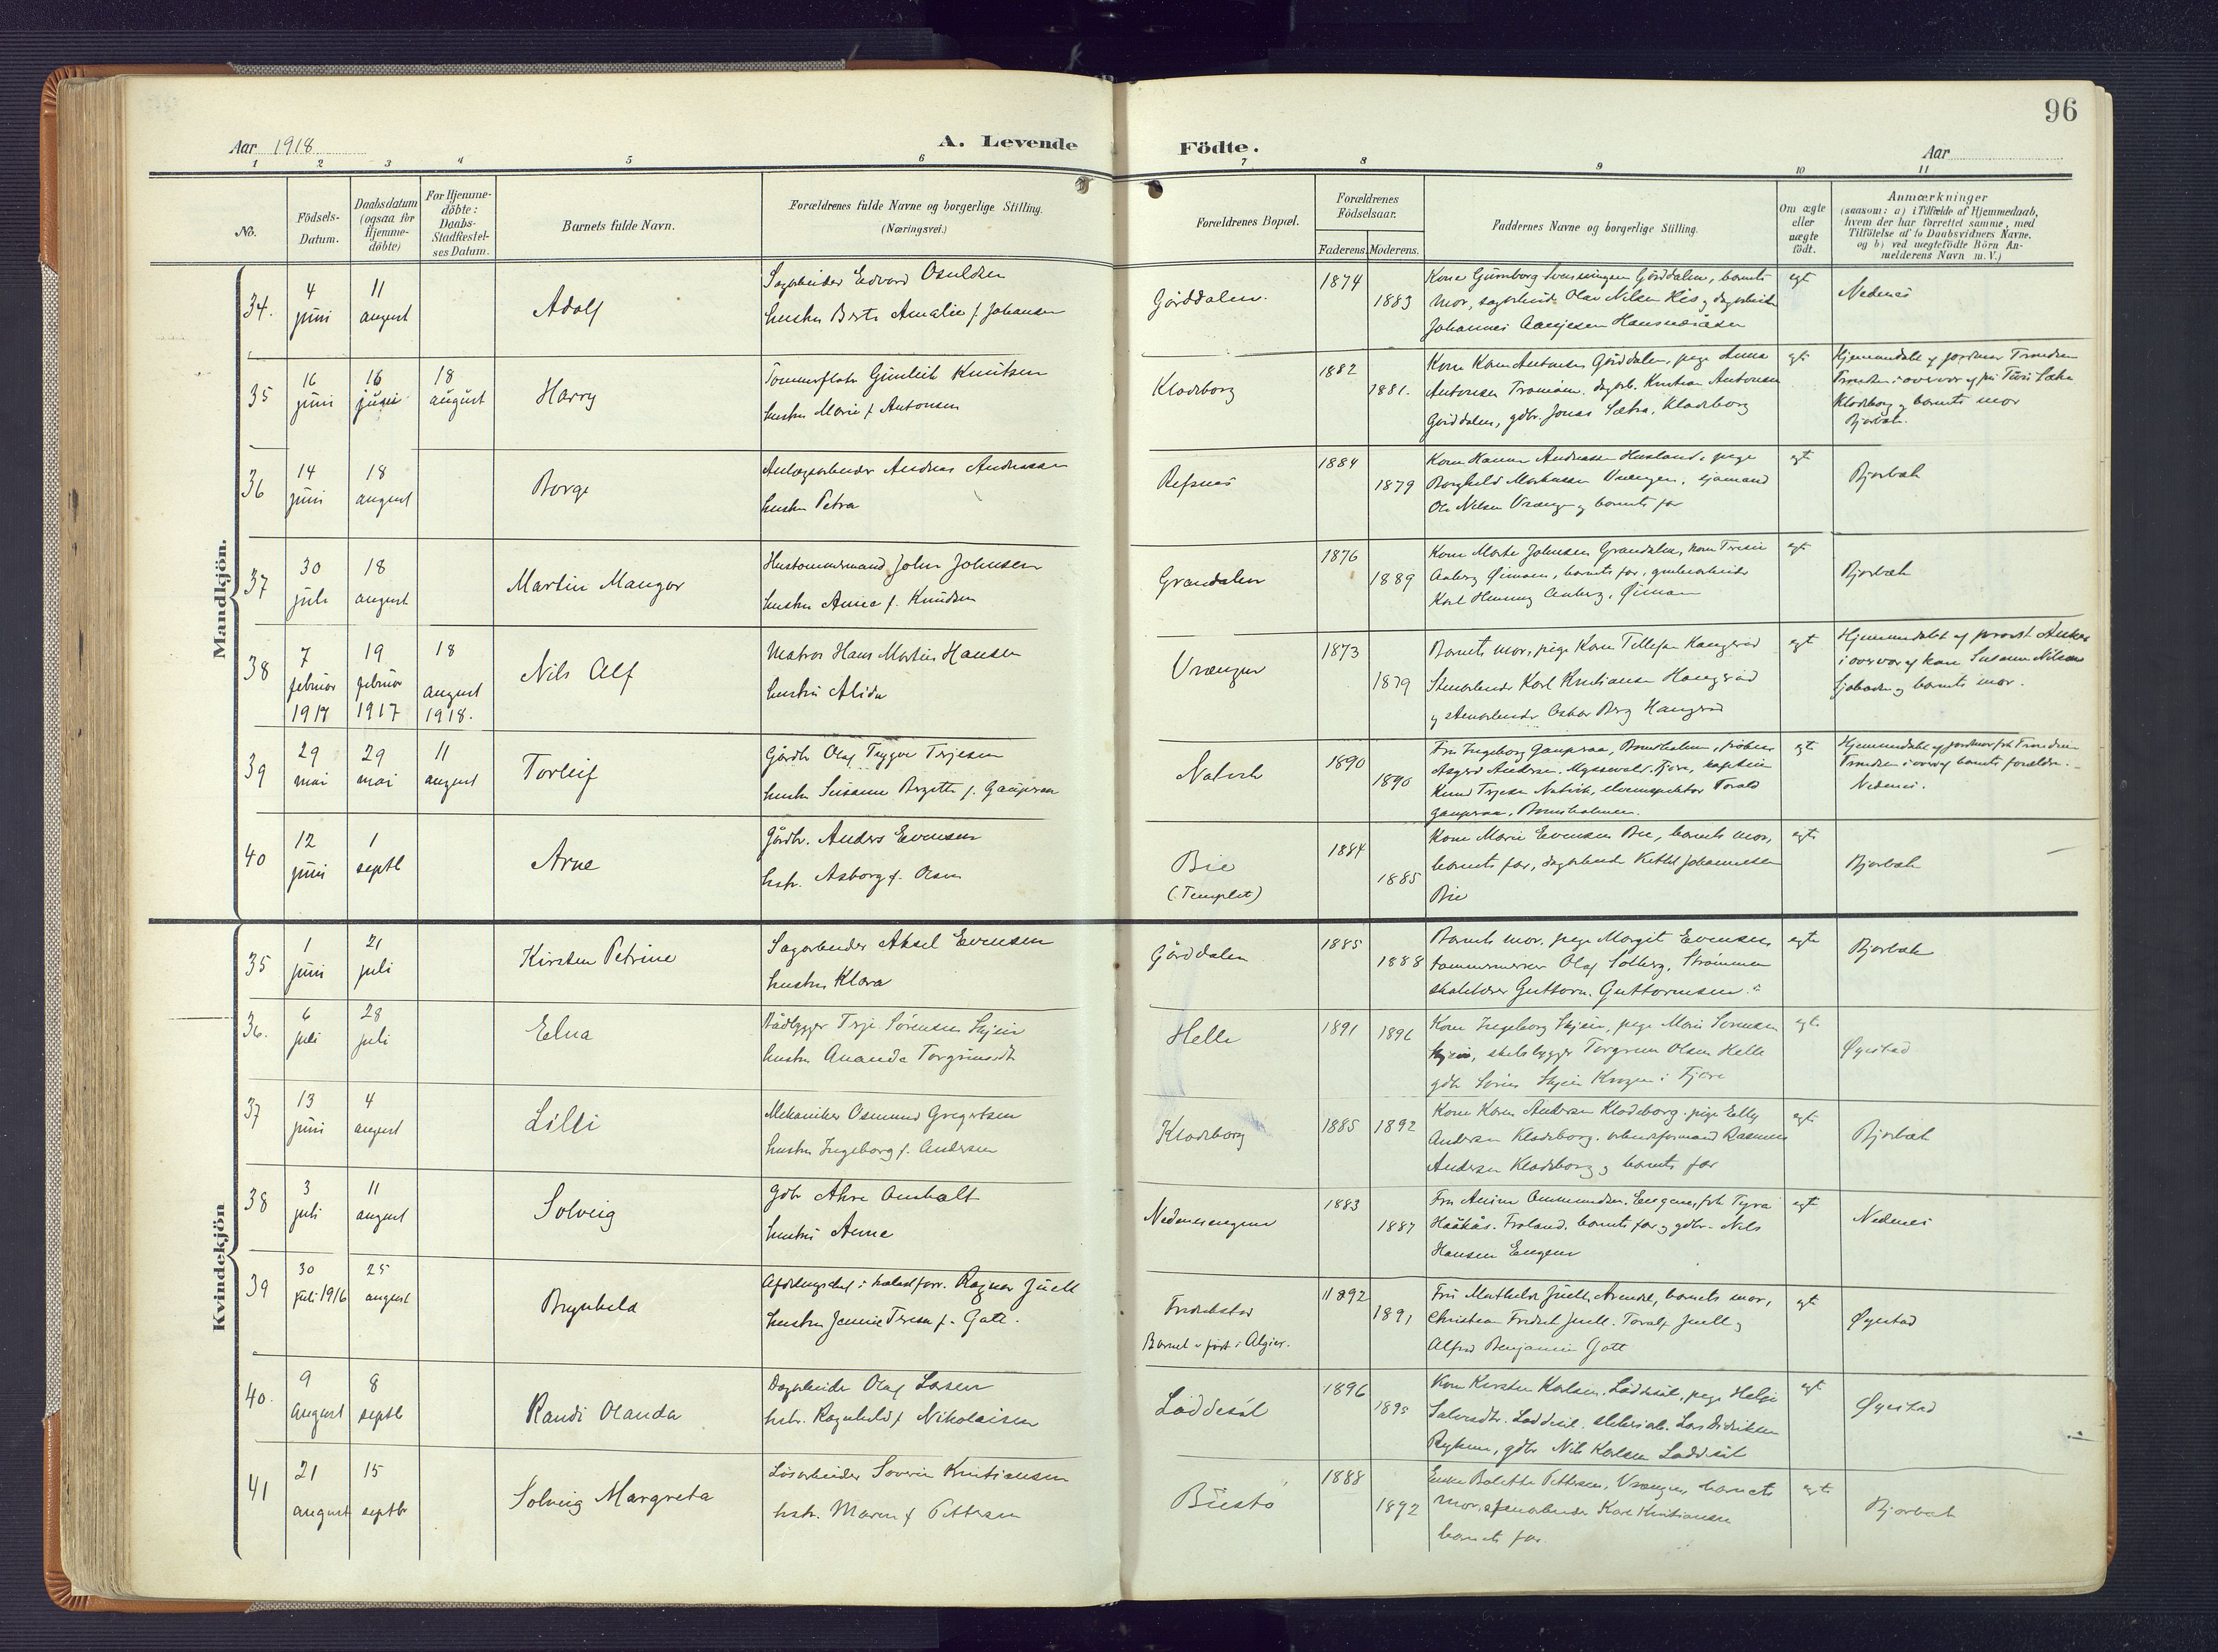 96
Aar 1918
A. Levende Födte.
Aar
1 2 3 4 5 6 7 8 9 10 11
No.
Födsels-Datum.
Daabsdatum (ogsaa for Hjemme-döbte)
For Hjemme-döbte: Daabs-Stadfestel-ses Datum.
Barnets fulde Navn.
Forældrenes fulde Navne og borgerlige Stilling.
(Næringsvei.)
Forældrenes Bopæl.
Forældrenes Födselsaar.
Faderens. Moderens.
Faddernes Navne og borgerlige Stilling.
Om ægte eller uægte födt.
Anmærkninger
(saasom: a) i Tilfælde af Hjemmedaab, hvem der har forrettet samme, med Tilföielse af to Daabsvidners Navne, og b) ved uægtefödte Börn An-melderens Navn m.V.)
Mandkjön.
34. 4 juni 11 august Adolf
Sagarbeider Edvard Osuldsen
hustru Berte Amalie f. Johansen
Gårddalen. 1874 1883
barnets
mor, sagarbeider Olav Nilsen His og dagarbeider
Johannes
egt
Nedenes
35 16 juni 16 juni 18 august Harry
Tømmerfløter Gunleik Knutsen
hustru Marie f. Antonsen
Klodeborg 1882 1881.
Kone Karen Antonsen Gårddalen, pige Anna
Antonsen Tromøen, dagarb. Kristian Antonsen
Gårddalen, gdbr. Jonas Sætra, Klodeborg
egt
Hjemmedøbt af jordmor Trondsen
Klodeborg og barnets mor
Bjorbæk.
36 14 juni 18 august Borge
Anlægsarbeider Andreas Andreassen
hustru Petra
Refsnes 1884 1879
Kone Hanna Andreassen
pige
Borghild Markussen Vrængen, sjømand
Ole Nilsen Vrængen og barnets far
egt
Bjorbæk
37 30 juli 18 august Martin Mangor
Hustømmermand John Johnsen
hustru Anne f. Knudsen
Grændalen 1876 1889
Kone Marte Johnsen Grændalen, kone
barnets far, grubearbeider
Karl Henning
egt
Bjorbæk
38 7 februar 1917 19 februar 1917 18 august 1918. Nils Alf
Matros Hans Martin Hansen
hustru Alida
Vrængen 1873 1879
Barnets mor, pige Karen Tellefsen
Stenarbeider Karl Kristiansen
og stenarbeider Oskar Berg
egt
Hjemmedøbt af provst
i overvær af kone Susanne Nilsen
og barnets mor.
39 29 mai 29 mai 11 august Torleif
Gårdbr Olaf Trygve Terjesen
hustru Susanne Birgitte f. Gauperaa
Natvik 1890 1890
Fru Ingeborg Gauperaa, Bomsholmen, frøken
Asgerd Andersen, Fjære, kaptein
Knud Terjesen Natvik, Torald
Gauperaa, Bomsholmen.
egt
Hjemmedøbt af jordmor frk Trondsen
Trondsen i overv. af barnets forældre.
Nedenes.
40 12 juni 1 septb Arne
Gårdbr. Anders Evensen
hstr. Asborg f. Olsen
Bie
(Templet)
1884 1885
Kone Marie Evensen Bie, barnets mor,
barnets far, dagarbeider Kittel Johannessen
Bie
egt
Bjorbæk
Kvindekjön
35 1 juni 21 juli Kirsten Petrine
Sagarbeider Aksel Evensen
hustru Klara
Gårddalen 1885 1888
Barnets mor, pige Margit Evensen
tømmermerker Olaf Solberg, Strømmen
Guttorm Guttormsen
egt
Bjorbæk
36. 6 juli 28 juli Elna
Bådbygger Terje Sørensen Skjeie
hustru Ananda Torgrimsdt
Helle 1891 1896
Kone Ingeborg Skjeie, pige Marie Sørensen
Skjeie, skibsbygger Torgrim Olsen Helle
gdbr Søren Skjeie i Fjære
egt
Øyestad
37 13 juni 4 august Lilli
Mekaniker Osmund Gregertsen
hustru Ingeborg f. Andersen
Klodeborg 1885 1892
Kone Karen Andersen Klodeborg, pige Elly
Andersen Klodeborg, arbeidsformand Rasmus
Andersen Klodeborg og barnets far
egt
Bjorbæk
38 3 juli 11 august Solveig
gdbr
hustru Anne
Nedenesengene 1883 1887
Fru Anine Ommundsen, Engene, frk Tyra
Håkås, Froland, barnets far og gdbr. Nils
Hansen Engene
egt
Nedenes
39 30 juli 1916 25 august Brynhild
Ragnar Juell
hustru Jennie Teresa f. Gatt.
Fredrikstad
Barnet er født i Algier.
1892 1891
Fru Mathilde Juell, Arendal, barnets mor,
Christian Fredrik Juell, Toralf Juell og
Alfred Benjamin Gatt
egt
Øyestad
40. 9 august 8 septb Randi Olanda
Dagarbeider Olaf Larsen
hstr. Ragnhild f. Nikolaisen
Løddesøl 1896 1895
Kone Kirsten Karlsen, Løddesøl, pige Helga
Løddesøl, Lars Didriksen
Rykene, gdbr Nils Karlsen Løddesøl
egt
Øyestad
41 21 august 15 septbr Solveig Margreta
Løsarbeider Severin Kristiansen
hstr. Maren f. Pettersen
Buestø 1888 1892
Enke Bolette Pettersen, Vrængen, barnets
mor, stenarbeider Karl Kristiansen
barnets far
egt
Bjorbæk